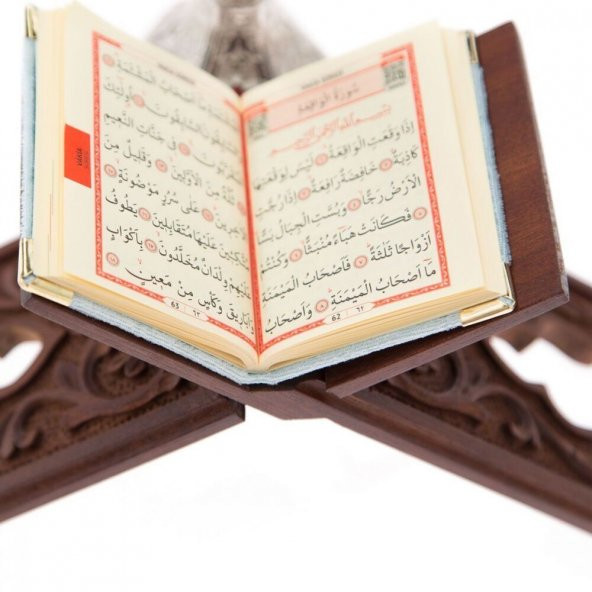 سُورَةُ الْوَاقِعَةِ
بِسْمِ اللّٰهِ الرَّحْمٰنِ الرَّحِيمِ
إِذَا وَقَعَتِ الْوَاقِعَةُ ۝١ لَيْسَ لِوَقْعَتِهَا
كَاذِبَةٌ ۝٢ خَافِضَةٌ رَافِعَةٌ ۝٣ إِذَا رُجَّتِ
الْأَرْضُ رَجًّا ۝٤ وَبُسَّتِ الْجِبَالُ بَسًّا
۝٥ فَكَانَتْ هَبَاءً مُنْبَثًّا ۝٦ وَكُنْتُمْ
أَزْوَاجًا ثَلٰثَةً ۝٧ فَأَصْحَابُ الْمَيْمَنَةِ
مَا أَصْحَابُ الْمَيْمَنَةِ ۝٨ وَأَصْحَابُ
62 ٦٢
الْمَشْـَٔمَةِ مَا أَصْحَابُ الْمَشْـَٔمَةِ
وَالسَّابِقُونَ السَّابِقُونَ أُولٰئِكَ
الْمُقَرَّبُونَ فِي جَنَّاتِ النَّعِيمِ
ثُلَّةٌ مِنَ الْأَوَّلِينَ وَقَلِيلٌ مِنَ
الْآخِرِينَ عَلَى سُرُرٍ مَوْضُونَةٍ
مُتَّكِئِينَ عَلَيْهَا مُتَقَابِلِينَ يَطُوفُ
عَلَيْهِمْ وِلْدَانٌ مُخَلَّدُونَ بِأَكْوَابٍ
وَأَبَارِيقَ وَكَأْسٍ مِنْ مَعِينٍ
63 ٦٣